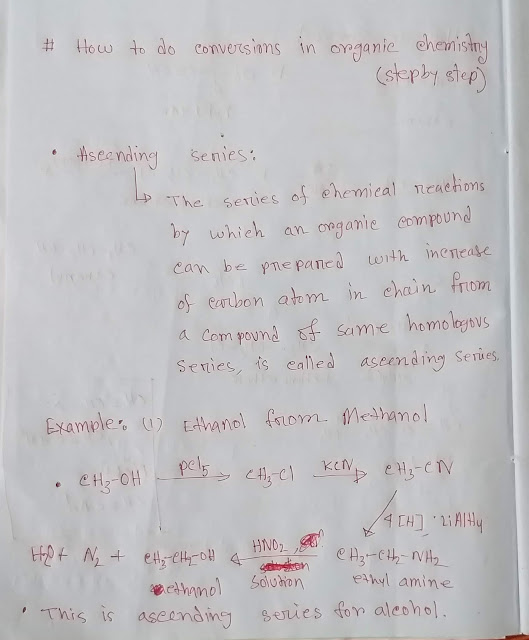 # How to do conversions in organic chemistry
(step by step)
• Ascending series:
↳ The series of chemical reactions
by which an organic compound
can be prepared with increase
of carbon atom in chain from
a compound of same homologous
series, is called ascending series.
Example: (1) Ethanol from Methanol
• CH3-OH —PCl5→ CH3-Cl —KCN→ CH3-CN
↙ 4[H] · LiAlH4
H2O + N2 + CH3-CH2-OH ←HNO2, solution— CH3-CH2-NH2
ethanol ethyl amine
• This is ascending series for alcohol.